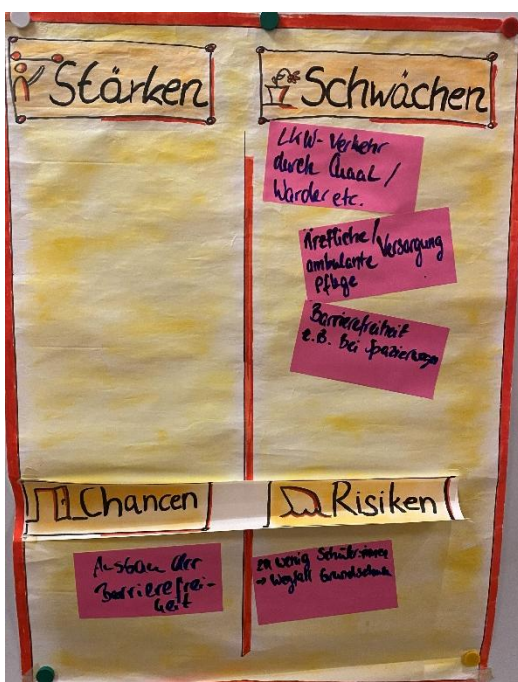 Stärken
Schwächen
LKW-Verkehr
durch
Warder etc.
Ärztliche/
ambulante Versorgung
Pflege
Barrierefreiheit
z.B. bei Spazierwegen
Chancen
Risiken
Ausbau der
Barrierefrei-
heit
zu wenig Schüler:innen
→ Wegfall Grundschule